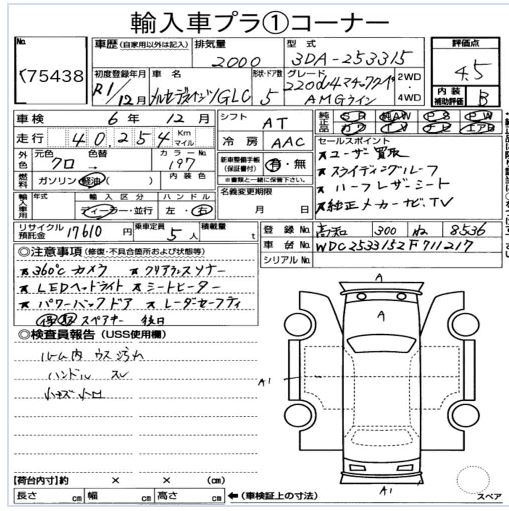 輸入車プラ①コーナー
No. 75438
車歴 (自家用以外は記入) 排気量 2000 型式 3DA-253315
評価点 4.5
内装補助評価 B
初度登録年月 R1/12月 車名 メルセデスベンツGLC 形状・ドア数 5 グレード 220d 4マチッククーペ AMGライン 2WD・4WD
車検 6年 12月 シフト AT
走行 40,254 Km マイル 冷房 AAC
純正品 SR AW PS PW カワ TV ナビ エアB
外色 元色 クロ 色替 → カラーNo. 197
燃料 ガソリン 軽油 内装色
新車整備手帳 (保証書付) 有・無
※書類と一緒に保管下さい。
セールスポイント
★ユーザー買取
★スライディングルーフ
★ハーフレザーシート
★純正メーカーナビ、TV
輸入車用 年式 輸入区分 ディーラー・並行 ハンドル 左・右
名義変更期限 月 日
リサイクル預託金 17610円 乗車定員 5人 積載量 t
登録No. 高知 300 ね 8536
車台No. WDC2533152F711217
シリアルNo.
◎注意事項 (修復・不具合箇所および状態等)
★360°カメラ ★クリアランスソナー
★LEDヘッドライト ★シートヒーター
★パワーバックドア ★レーダーセーフティ
保 取 スペアキー 後日
◎検査員報告 (USS使用欄)
ルーム内 ウス汚れ
ハンドル スレ
小キズ 小凹
A
A
A1
A1
【荷台内寸】約 × × (cm)
長さ cm 幅 cm 高さ cm ←(車検証上の寸法)
スペア